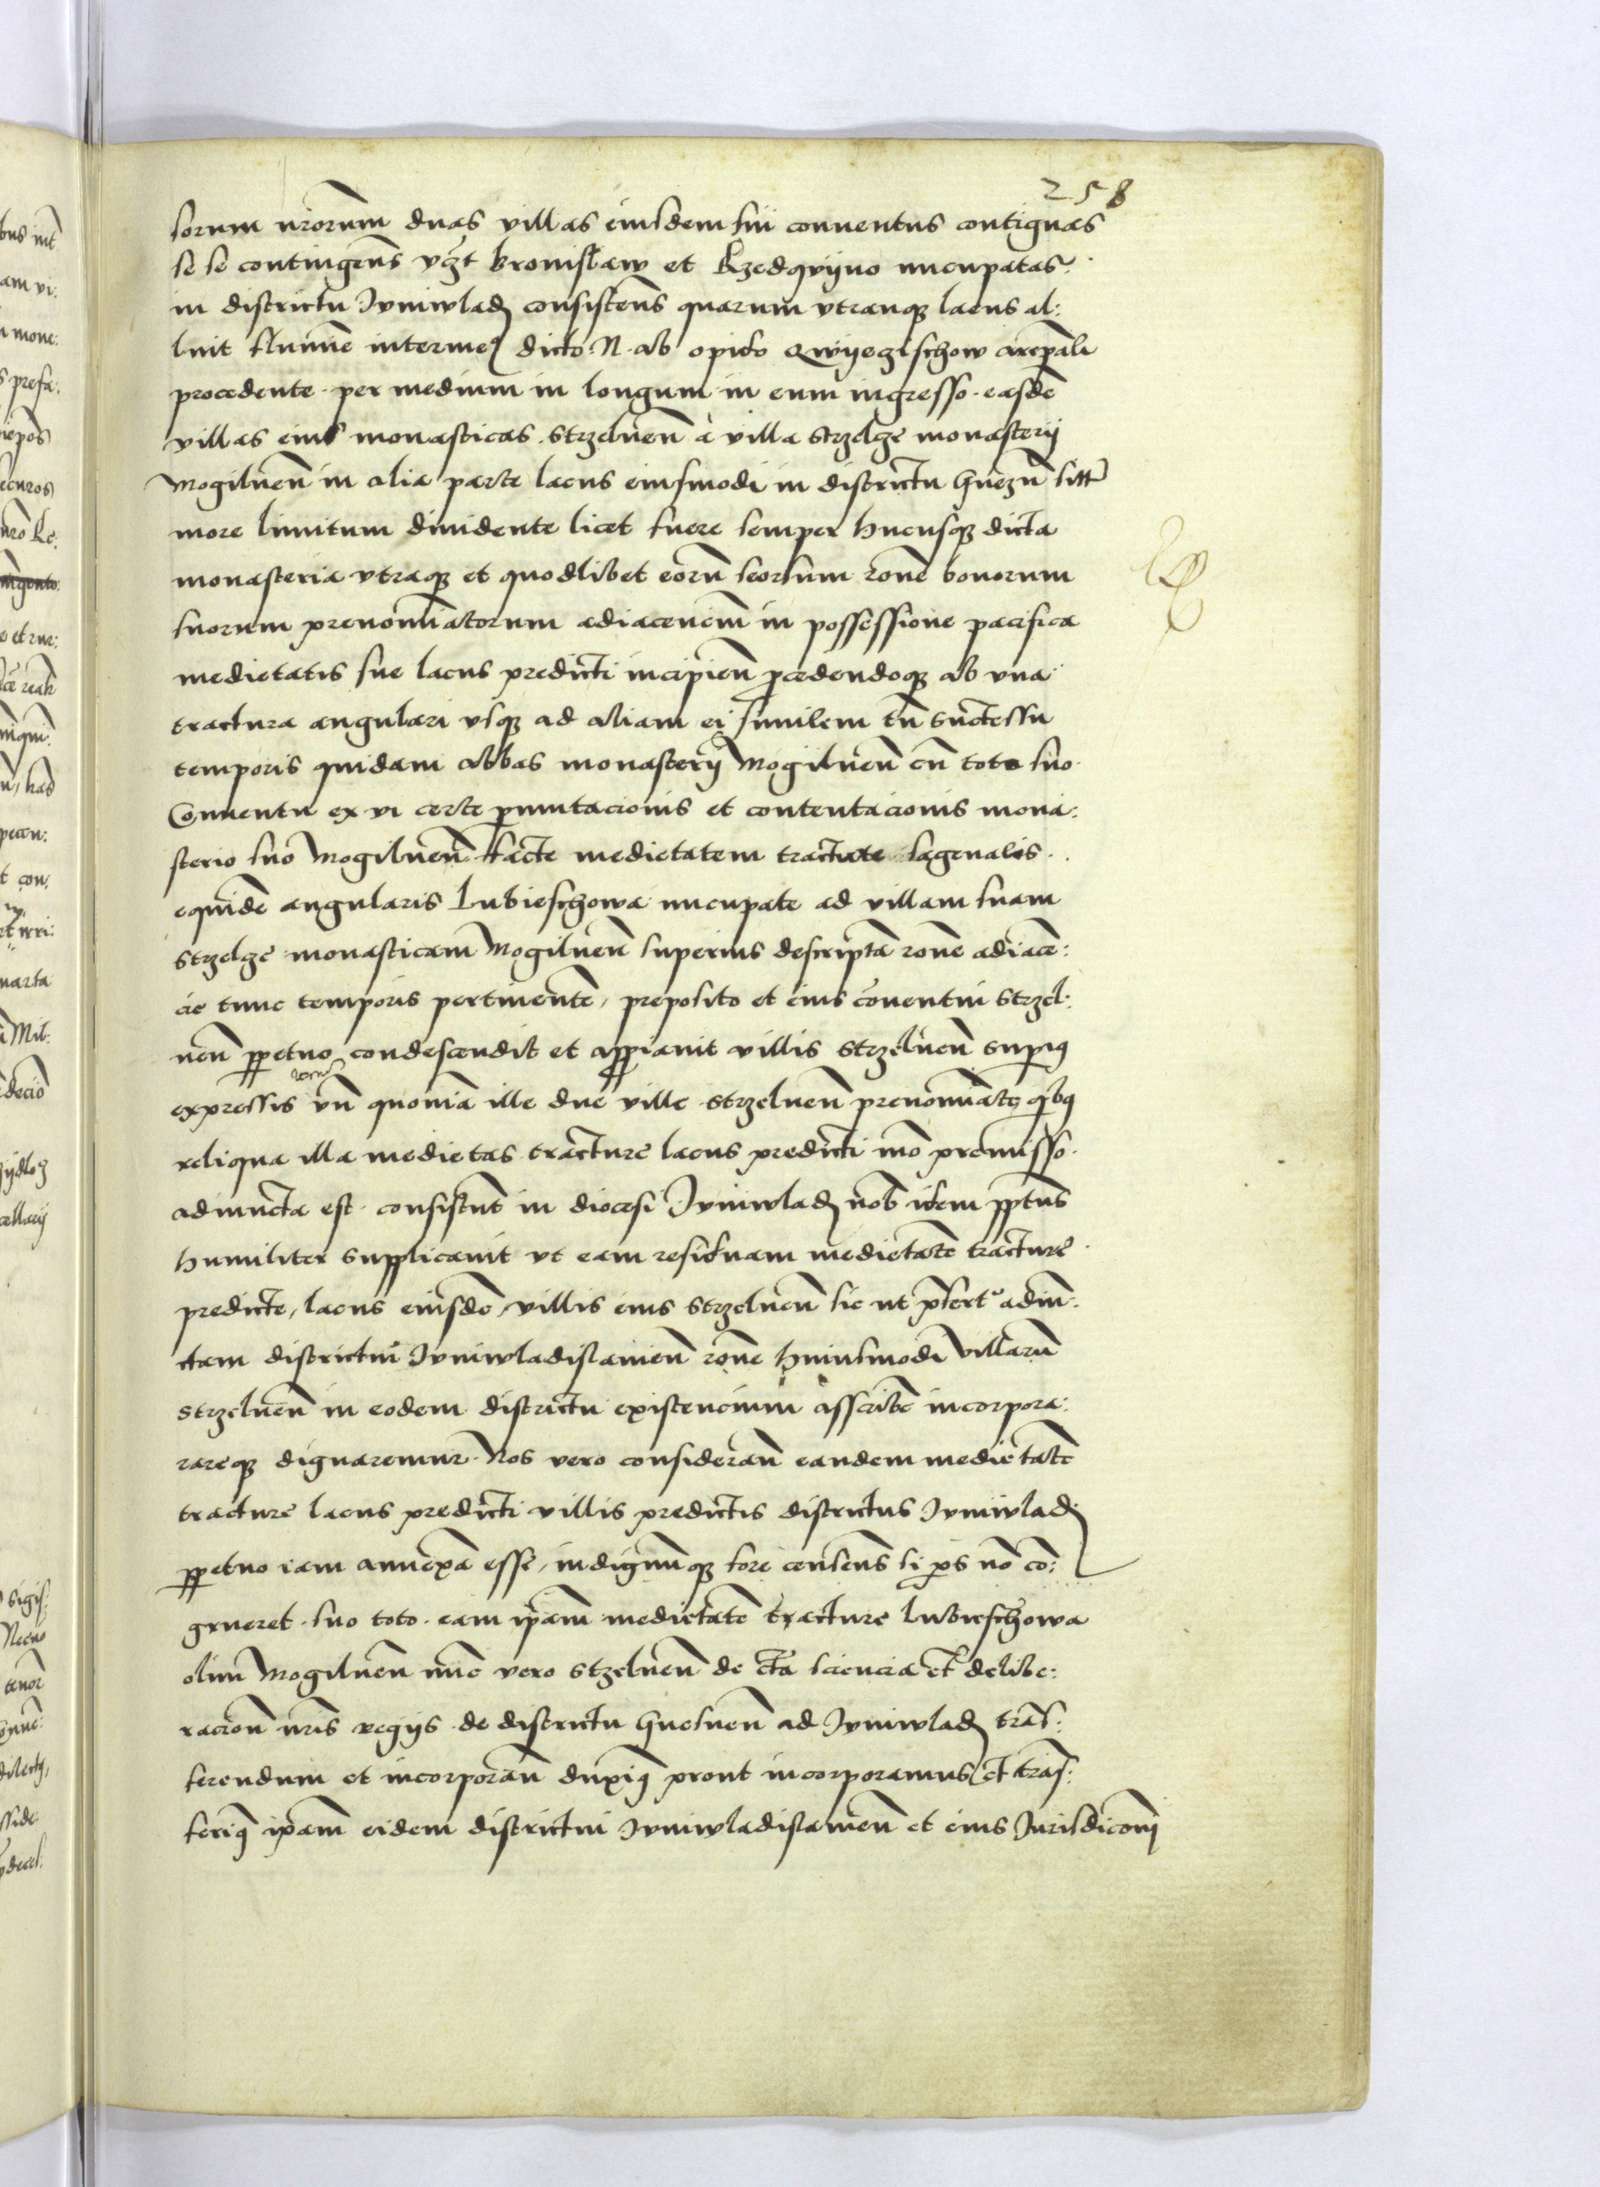 258
sorum nrorum duas villas eiusdem sui conuentus contiguas
se se contingens vczt Bronislaw et Rzedqvyno nucupatas
in districtu Juniwladn consistens quarum vtranq lacus al:
luit flumine intermed dicto N. ab opido Qwyeczschow
procedente per medium in longum in eum ingresso easde
villas eius monasticas Strzelnen a villa Strzelcze monasterij
Mogilnen in alia parte lacus eiusmodi in districtu Gnezn sitt
more limitum diuidente licet fuere semper hucusq dicta
monasteria vtraq et quodlibet eoru seorsum rone bonorum
suorum prenominatorum adiacencium in possessione pacifica
medietatis sue lacus predicti incipien pcedendoq ab vna
tractura angulari vsq ad aliam ei similem tn successu
temporis quidam abbas monasterij Mogilnen cu toto suo
Conuentu ex vi certe pmutacionis et contentacionis mona:
sterio suo Mogilnen facte medietatem tracture sagenalis
equide angularis Lubieschowa nucupate ad villam suam
Strzelcze monasticam Mogilnen superius descripta rone adiace:
cie tunc temporis pertinente, preposito et eius couentui Strzel:
nen ppetuo condescendit et appianit villis Strzelnen supius
expressis vn quonia ille due ville Strzelnen prenominate qbus
reliqua illa medietas tracture lacus predicti mo premisso
adiuncta est consistut in diocesi Juniwladn nob idem ppetus
humiliter supplicauit vt eam residuam medietate tracture
predicte, lacus eiusde, villis eius Strzelnen sic ut pfert adiu:
ctam districtui Juniwladislauien rone huiusmodi villaru
Strzelnen in eodem districtu existencium asscribe incorpora:
rareq dignaremur. Nos vero consideran eandem medietate
tracture lacus predicti villis predictis districtus Juniwladn
ppetuo iam annexa esse, indignuq fore censens si ps no co:
grueret suo toto eam ipam medietate tracture Lubieschowa
olim Mogilnen nuc vero Stzelnen de cta sciencia et delibe:
racion nris regijs de districtu Gnesnen ad Juniwladn tras:
ferendum et incorporan duximq prout incorporamus et tras:
ferimq ipam eidem districtui Juniwladislauien et eius Jurisdiconi